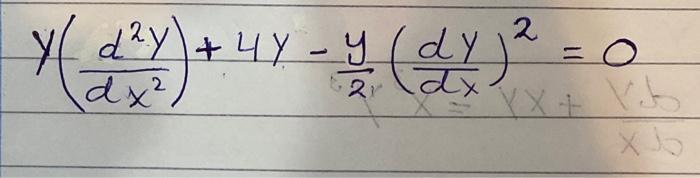 y(d²y/dx²) + 4y - y/2 (dy/dx)² = 0